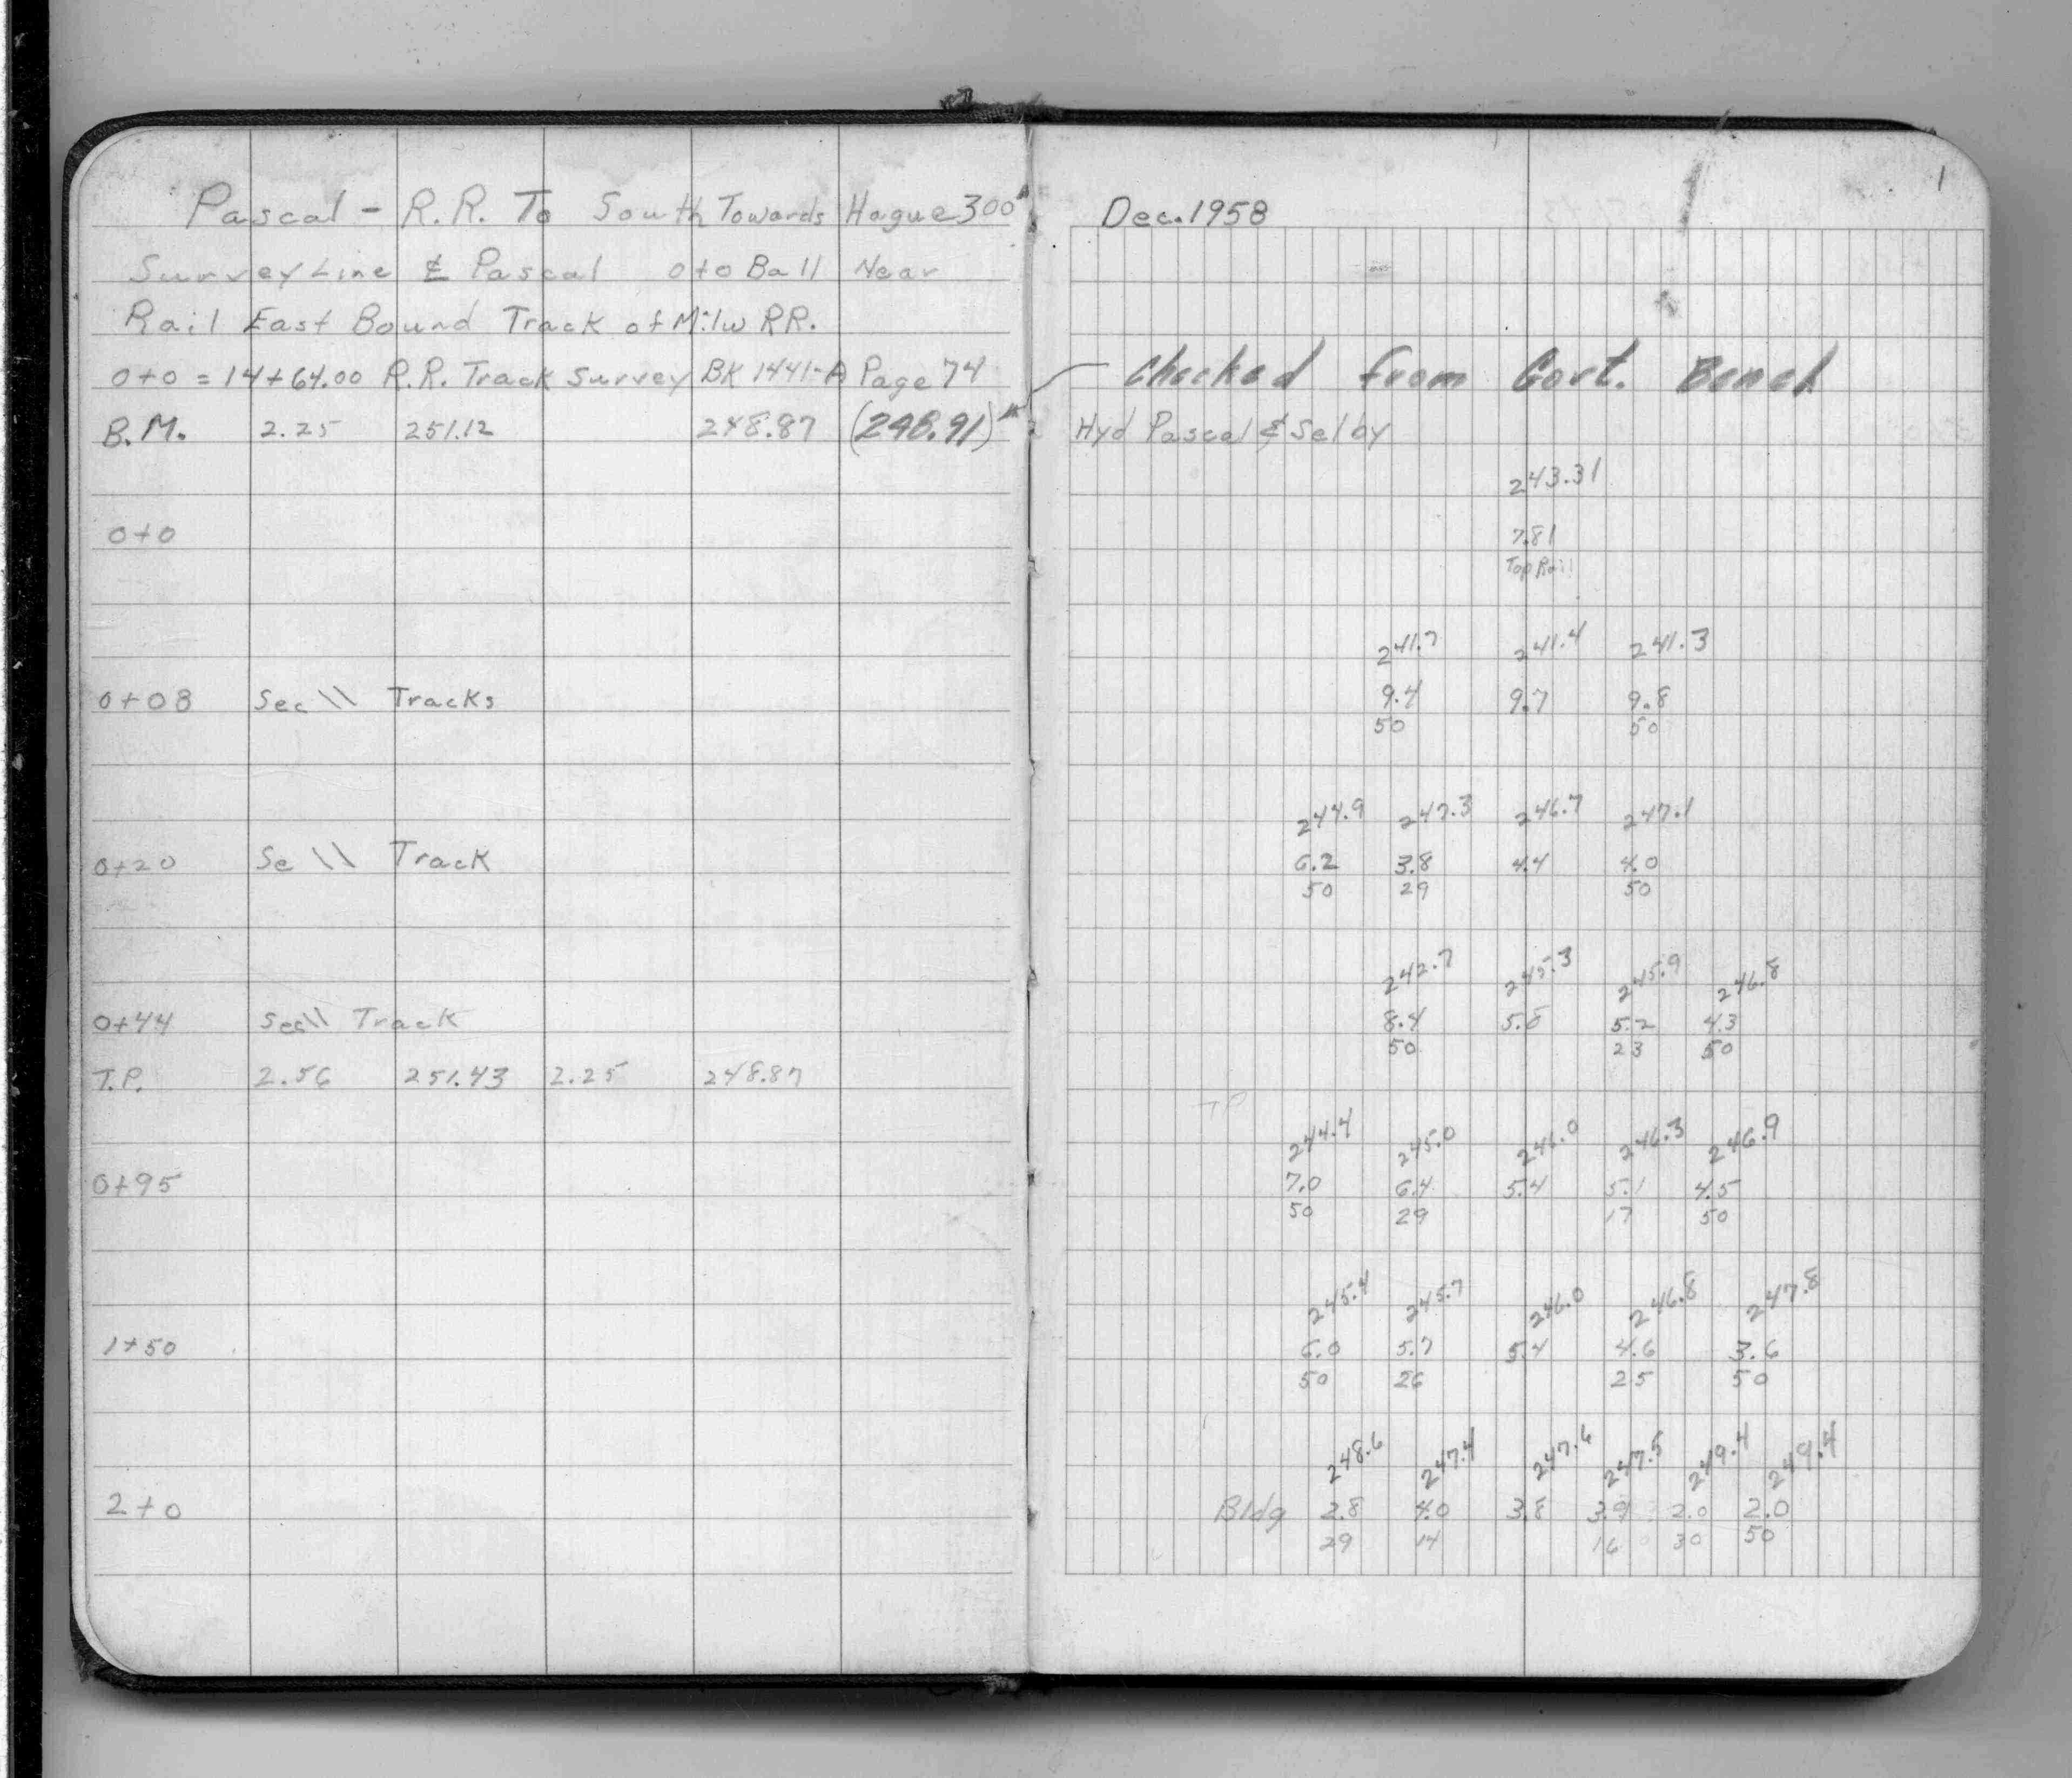 Pascal - R.R. To South Towards Hague 300'
Survey Line ℄ Pascal 0+0 Ball Near
Rail East Bound Track of Milw RR.
0+0 = 14+64.00 R.R. Track Survey BK 1441-A Page 74
B.M. 2.25 251.12 248.87 (248.91)
0+0
0+08 Sec \\ Tracks
0+20 Se \\ Track
0+44 Sec \\ Track
T.P. 2.56 251.43 2.25 248.87
0+95
1+50
2+0
1
Dec. 1958
Checked from Govt. Bench
Hyd Pascal & Selby
243.31
7.81
Top Rail
241.7 241.4 241.3
9.4 9.7 9.8
50 50
244.9 247.3 246.7 247.1
6.2 3.8 4.4 4.0
50 29 50
242.7 245.3 245.9 246.8
8.4 5.8 5.2 4.3
50 23 50
TP
244.4 245.0 246.0 246.3 246.9
7.0 6.4 5.4 5.1 4.5
50 29 17 50
245.4 245.7 246.0 246.8 247.8
6.0 5.7 5.4 4.6 3.6
50 26 25 50
248.6 247.4 247.6 247.5 249.4 249.4
Bldg 2.8 4.0 3.8 3.9 2.0 2.0
29 14 16 30 50